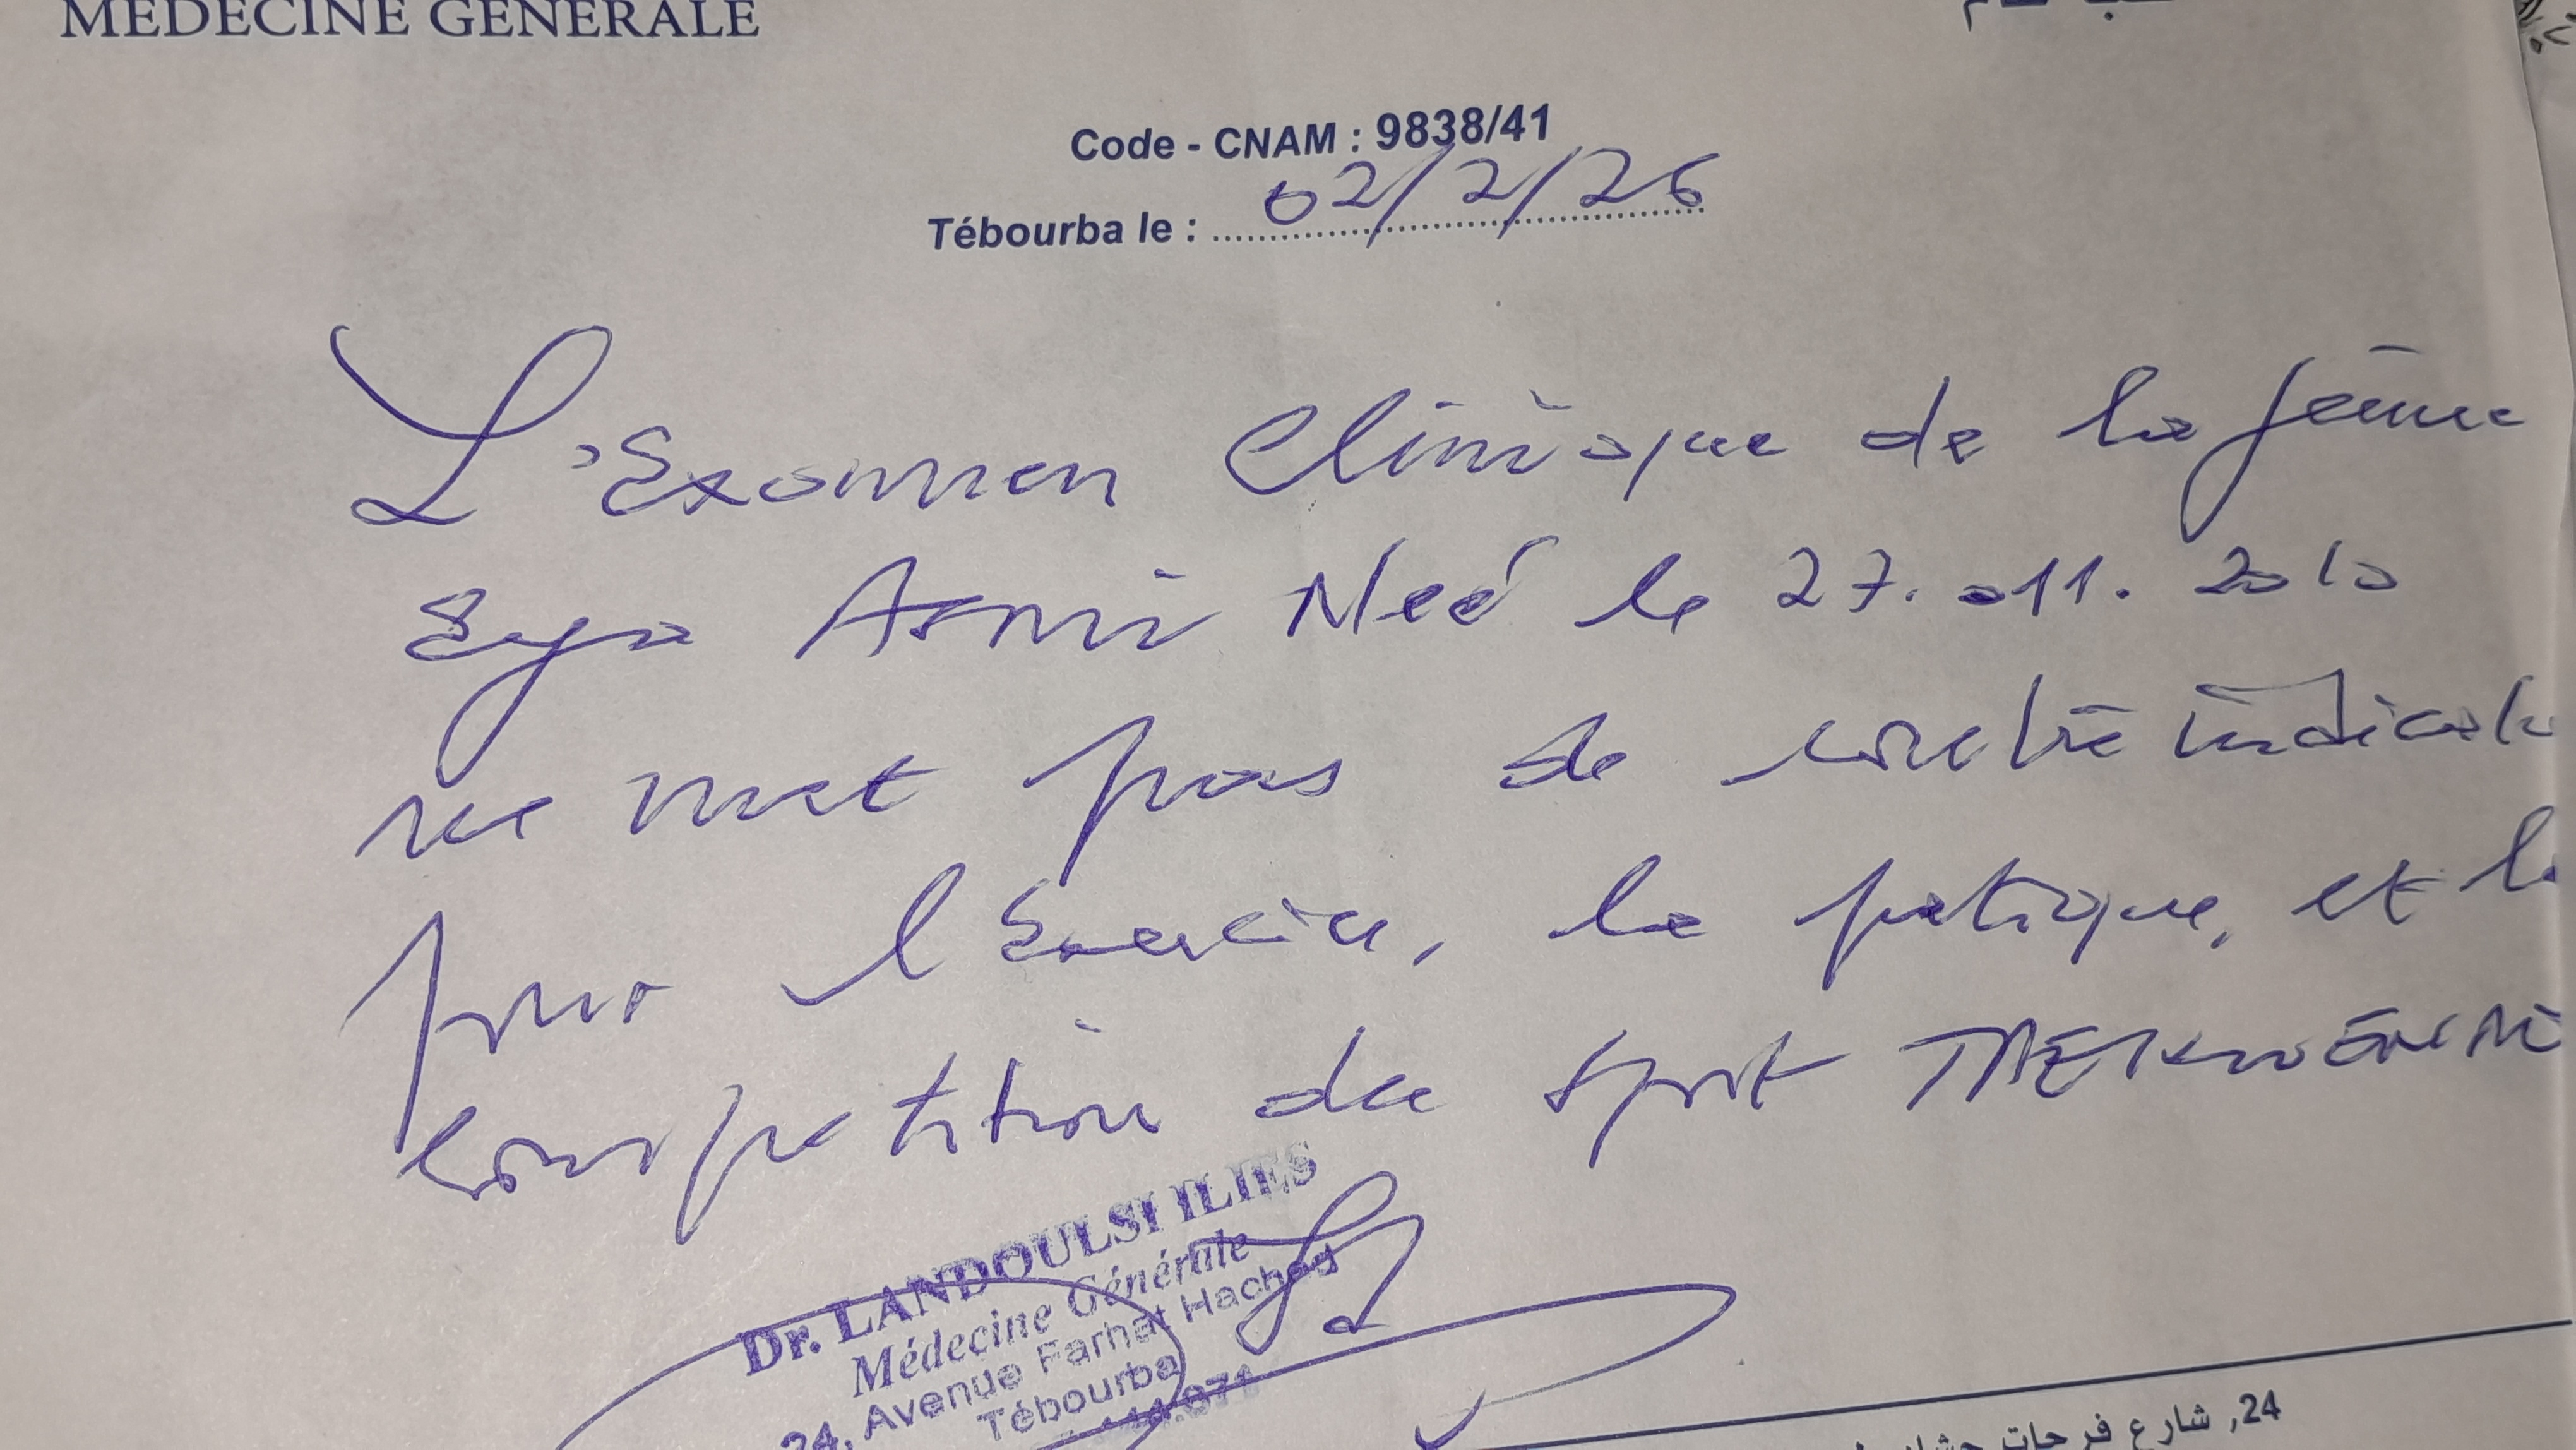 MEDECINE GENERALE
Code - CNAM : 9838/41
Tébourba le : 02/2/26
L'Examen Clinique de la jeune
Eya Asmi Neé le 27.011.2010
ne met pas de contre indicat
pour l'Exercice, la patique, et l
competition du sport TAEKWENDO
Dr. LANDOULSI ILIES
Médecine Générale
24, Avenue Farhat Hached
Tébourba
24, شارع فرحات حشاد